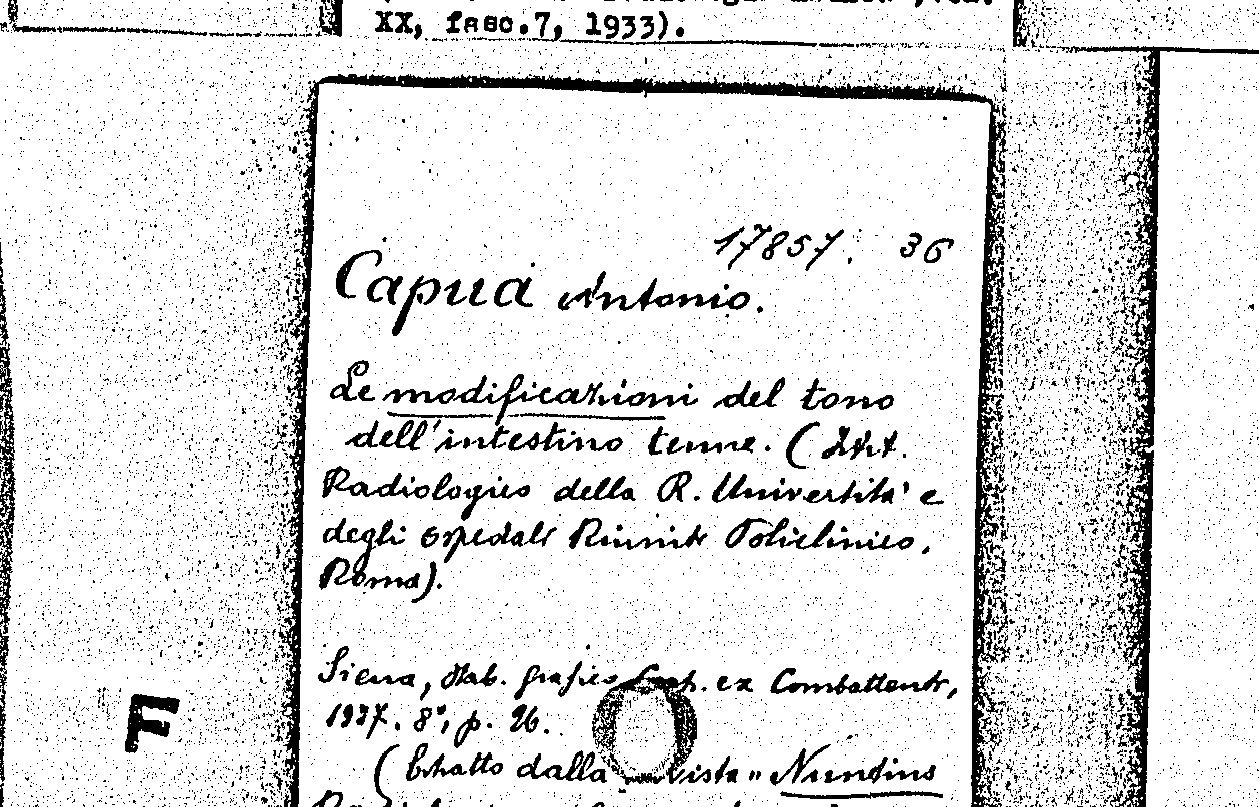 XX, fasc.7, 1933).
17857. 36
Capua Antonio.
Le modificazioni del tono
dell'intestino tenue. (Ist.
Radiologico della R. Università e
degli ospedali Riuniti Policlinico,
Roma).
Siena, Stab. grafico Coop. ex Combattenti,
1937. 8°, p. 26.
(Estratto dalla "Nuntius
F